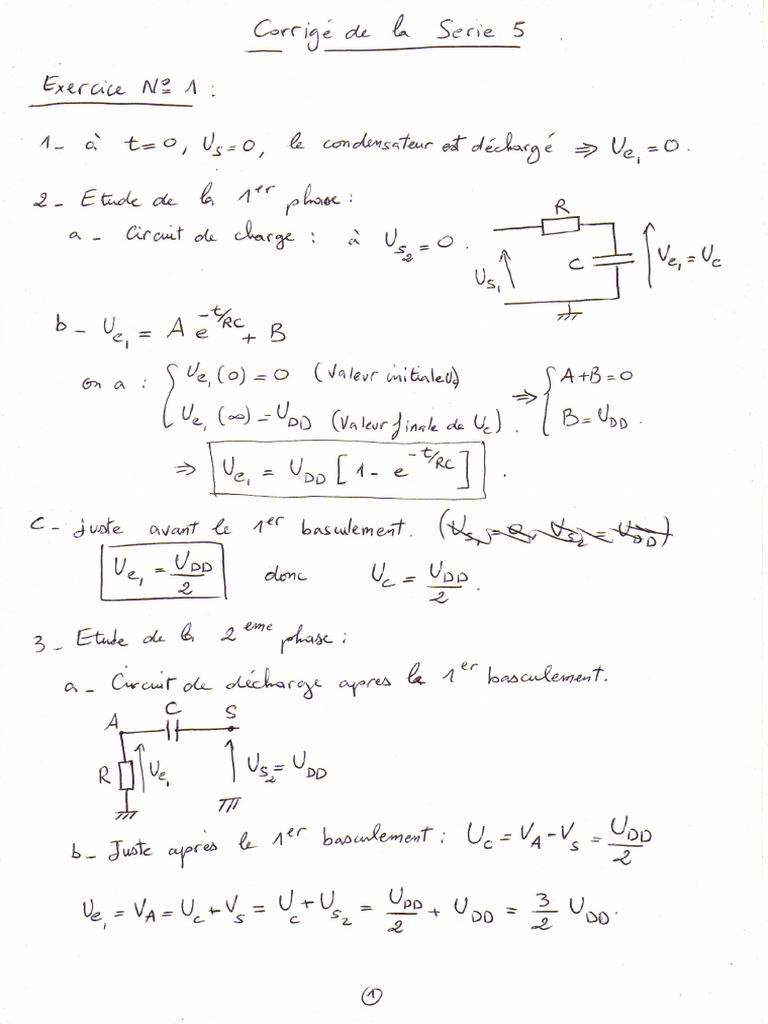 Corrigé de la Serie 5
Exercice Nº 1 :
1- à t=0, Us=0, le condensateur est déchargé ⇒ Ue₁=0.
2- Etude de la 1er phase :
a- Circuit de charge : à Us₂=0.
R
C
Us₁
Ue₁=Uc
b- Ue₁ = A e^(-t/RC) + B
on a : { Ue₁(0)=0 (Valeur initiale Uc)
Ue₁(∞)=UDD (Valeur finale de Uc).
⇒ { A+B=0
B=UDD.
⇒ Ue₁ = UDD [1- e^(-t/RC)].
C- juste avant le 1er basculement. (Us₁=0, Us₂=UDD)
Ue₁ = UDD/2 donc Uc = UDD/2.
3- Etude de la 2eme phase :
a- Circuit de décharge apres le 1er basculement.
A
C
S
R
Ue₁
Us₂=UDD
b- Juste après le 1er basculement : Uc = VA-Vs = UDD/2
Ue₁ = VA = Uc+Vs = Uc+Us₂ = UDD/2 + UDD = 3/2 UDD.
1